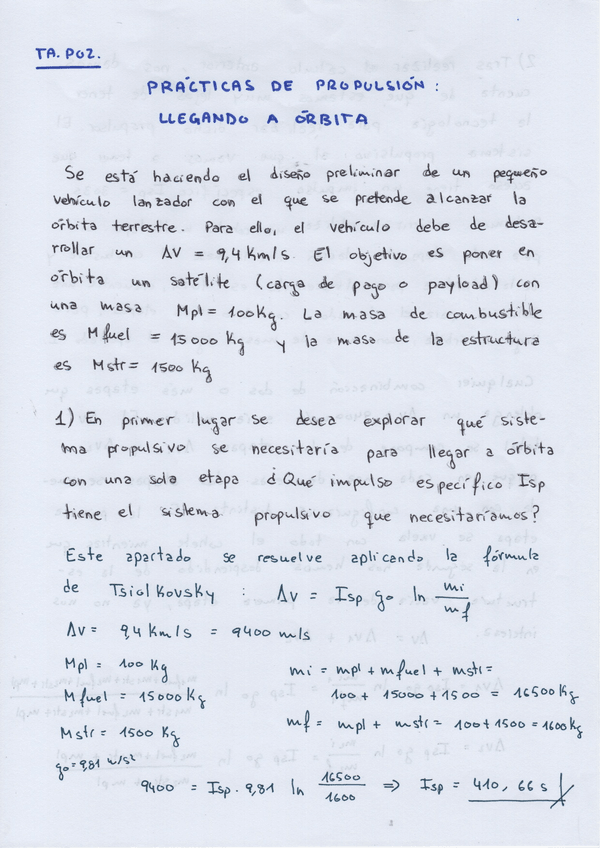 TA. P02.
PRÁCTICAS DE PROPULSIÓN:
LLEGANDO A ÓRBITA
Se está haciendo el diseño preliminar de un pequeño
vehículo lanzador con el que se pretende alcanzar la
órbita terrestre. Para ello, el vehículo debe de desa-
rrollar un ΔV = 9,4 Km/s. El objetivo es poner en
órbita un satélite (carga de pago o payload) con
una masa Mpl = 100Kg. La masa de combustible
es Mfuel = 15000 Kg y la masa de la estructura
es Mstr = 1500 Kg
1) En primer lugar se desea explorar qué siste-
ma propulsivo se necesitaría para llegar a órbita
con una sola etapa ¿Qué impulso específico Isp
tiene el sistema propulsivo que necesitaríamos?
Este apartado se resuelve aplicando la fórmula
de Tsiolkovsky : Δv = Isp go ln mi/mf
ΔV = 9,4 Km/s = 9400 m/s
Mpl = 100 Kg
mi = mpl + mfuel + mstr =
Mfuel = 15000 Kg
100 + 15000 + 1500 = 16500 Kg
Mstr = 1500 Kg
mf = mpl + mstr = 100 + 1500 = 1600 Kg
go = 9,81 m/s²
9400 = Isp · 9,81 ln 16500/1600 => Isp = 410,66 s